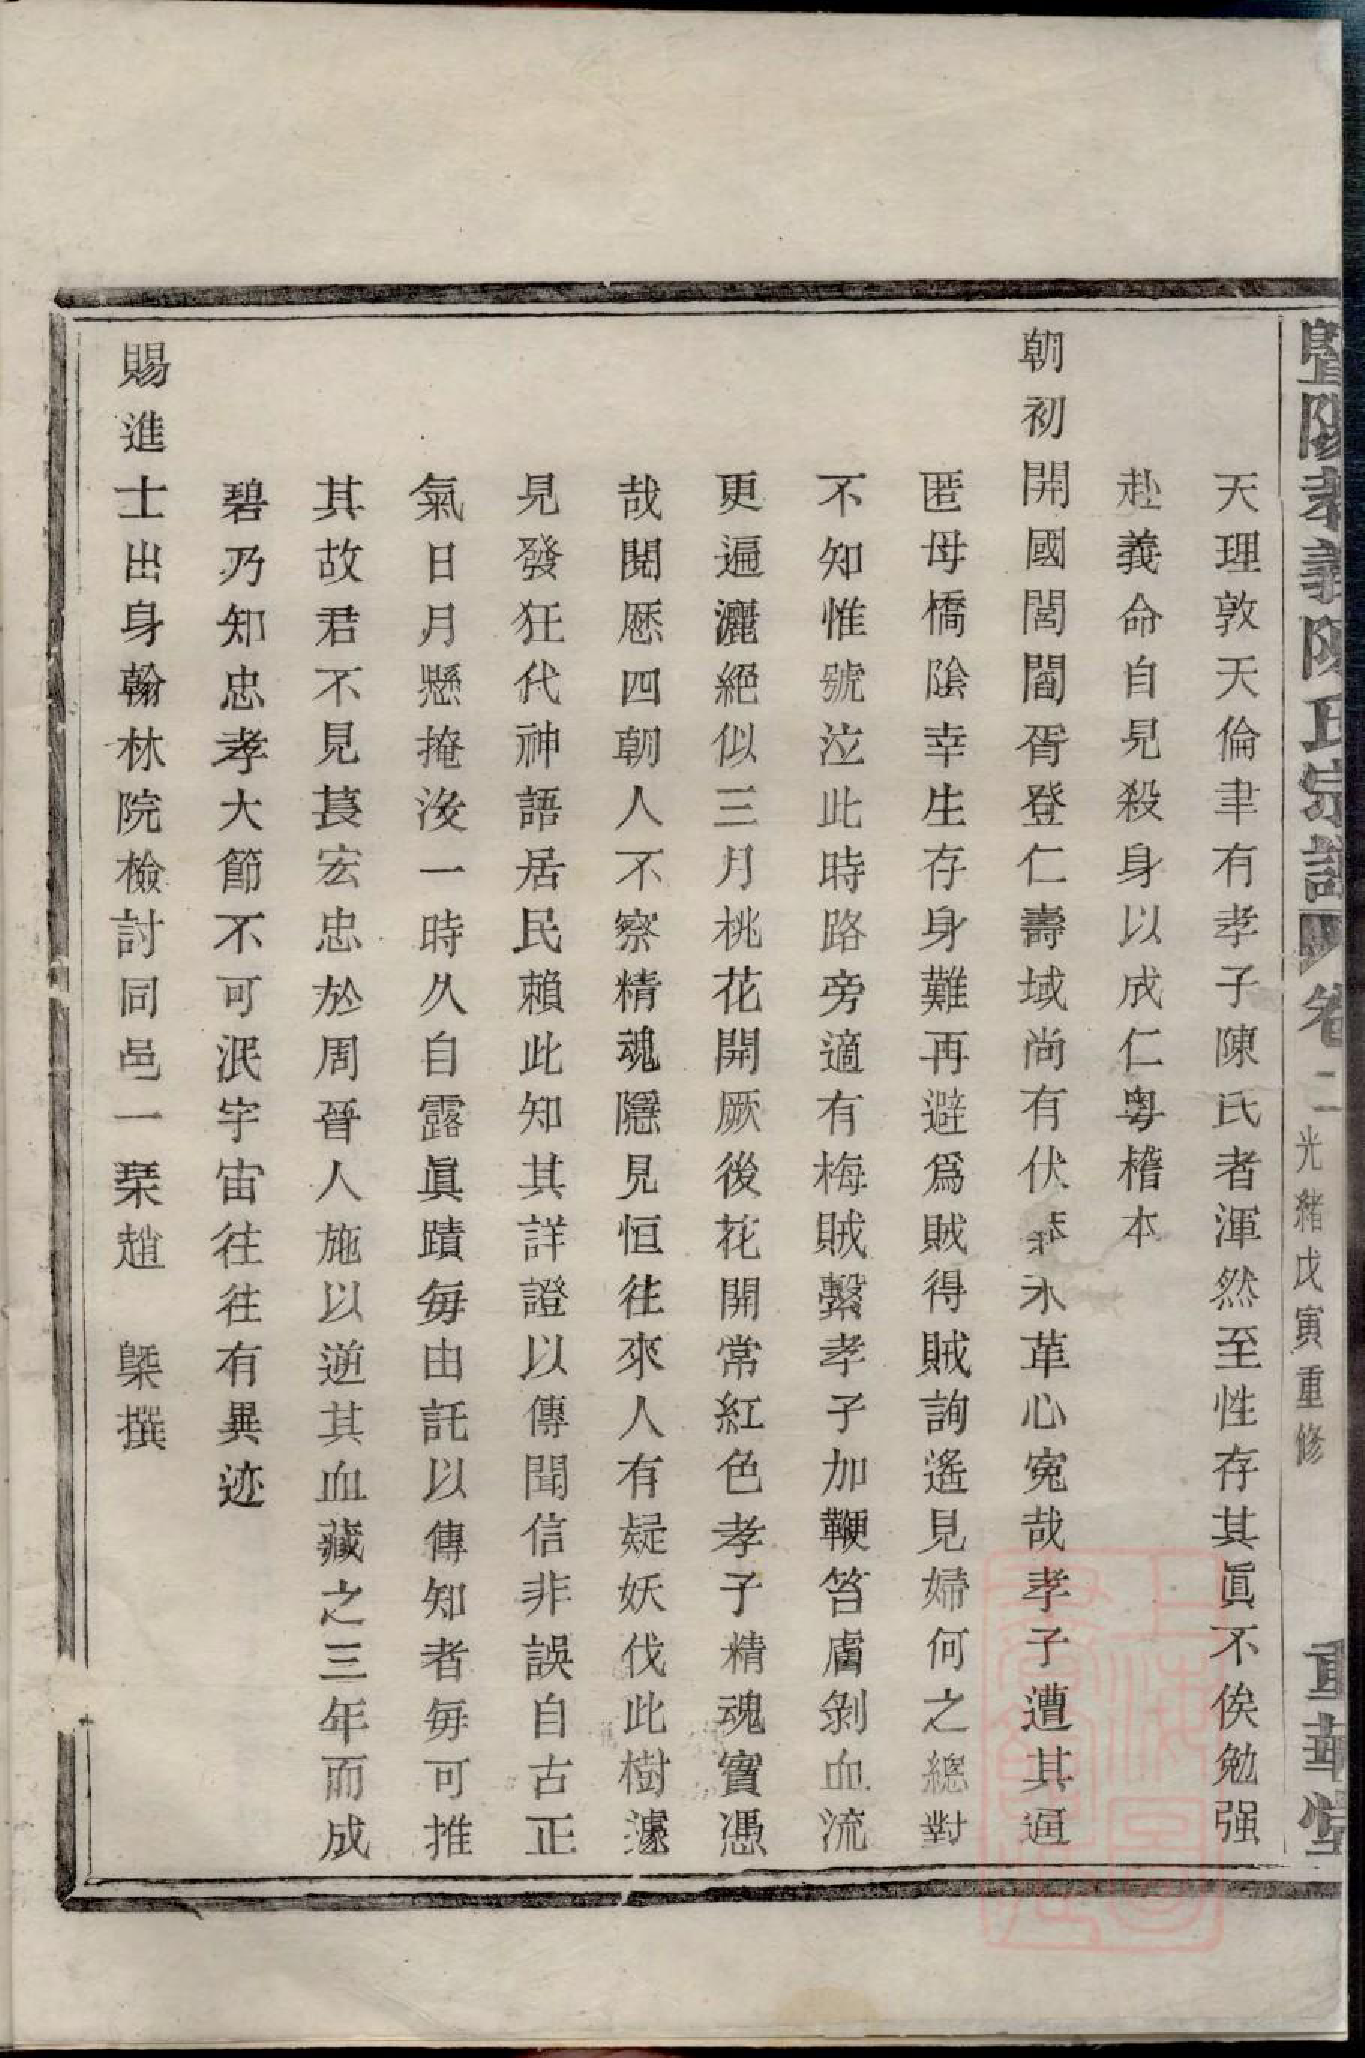 暨陽孝義陳氏宗譜 卷二 光緒戊寅重修 重華堂
天理敦天倫聿有孝子陳氏者渾然至性存其眞不俟勉强
赴義命自見殺身以成仁粵稽本
朝初開國閭閻胥登仁壽域尚有伏莽未革心寃哉孝子遭其逼
匿母橋陰幸生存身難再避爲賊得賊詢遙見婦何之總對
不知惟號泣此時路旁適有梅賊繫孝子加鞭笞膚剝血流
更遍灑絕似三月桃花開厥後花開常紅色孝子精魂實憑
哉閱歷四朝人不察精魂隱見恒徃來人有疑妖伐此樹遽
見發狂代神語居民賴此知其詳證以傳聞信非誤自古正
氣日月懸掩沒一時久自露眞蹟每由託以傳知者每可推
其故君不見萇宏忠於周晉人施以逆其血藏之三年而成
碧乃知忠孝大節不可泯宇宙徃徃有異迹
賜進士出身翰林院檢討同邑一琹趙 槼撰